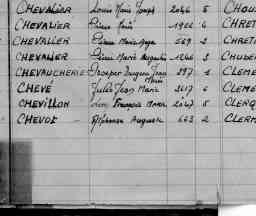 CHEVALIER Louis Marie Joseph 2046 5 CHOU
CHEVALIER Pierre Marie 1922 6 CHRET
CHEVALIER Pierre Marie Ange 569 2 CHRETI
CHEVALIER Pierre Marie Augustin 1246 3 CHUDE
CHEVAUCHERIE Prosper Jean 397 1 CLEME
Marie
CHEVÉ Jules Jean Marie 3617 6 CLEM
CHEVILLON Léon François Marie 2047 5 CLERQ
CHEVOE Alphonse Auguste 663 2 CLERM